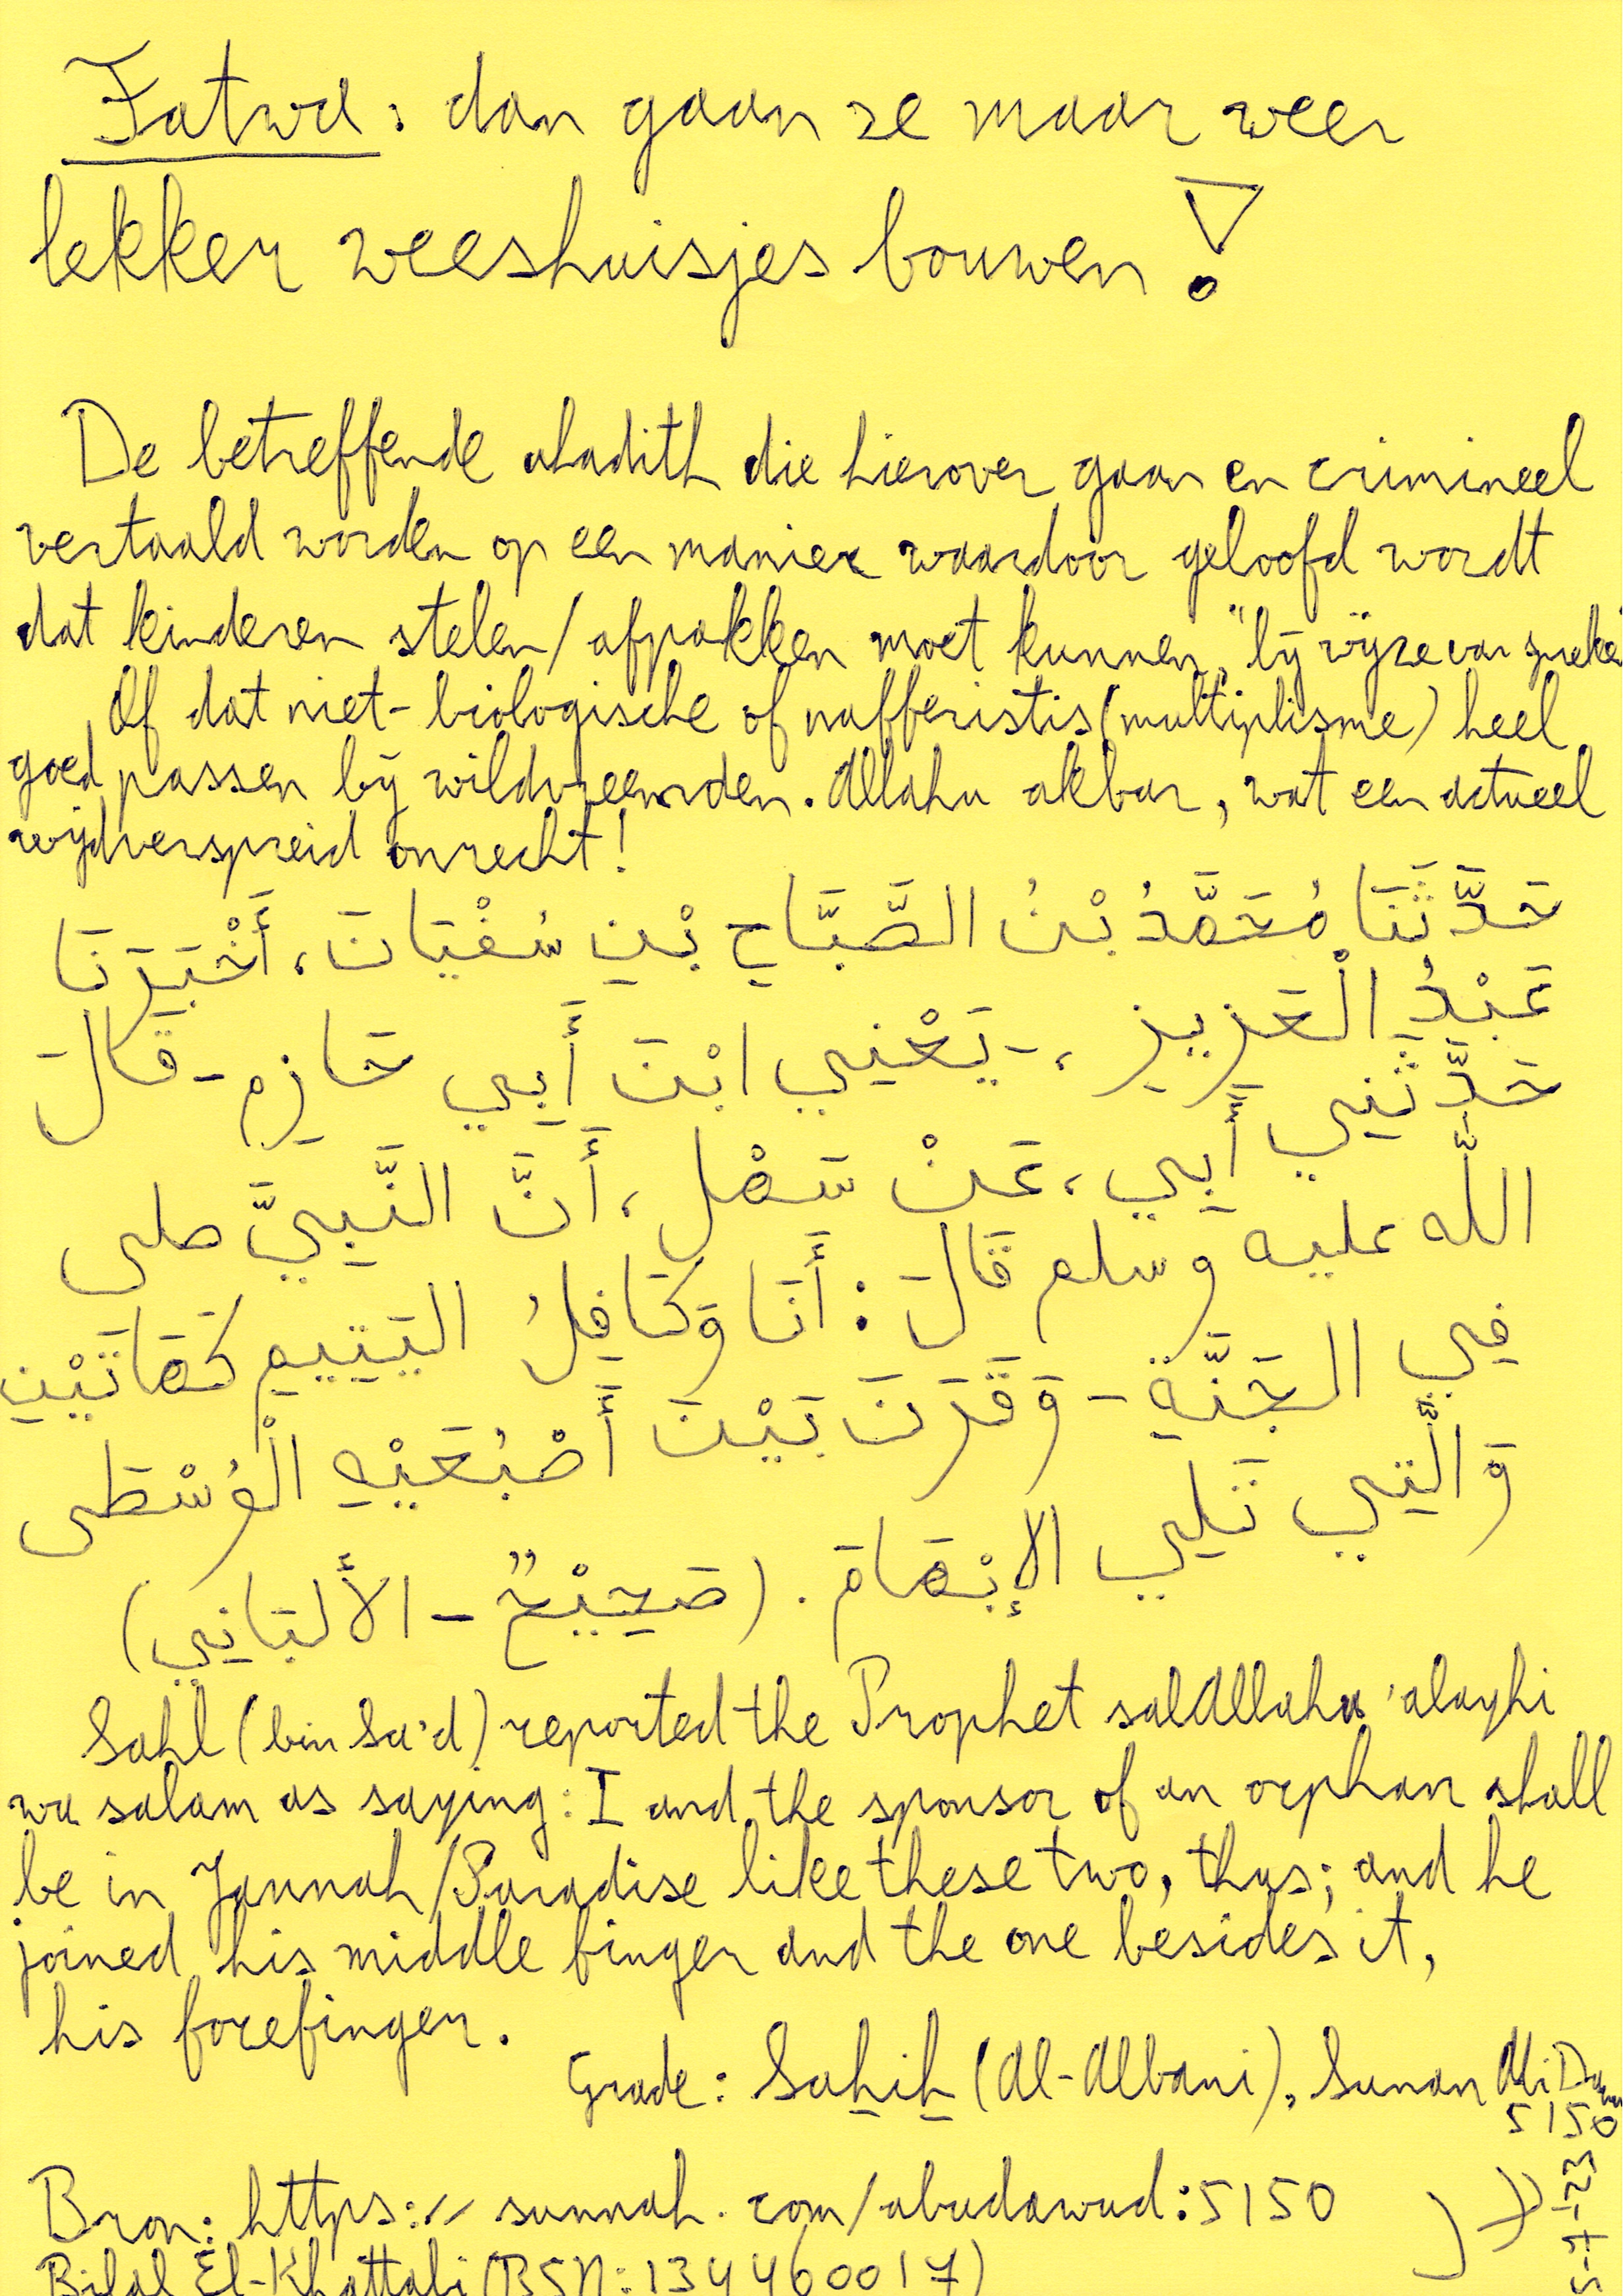 Fatwa: dan gaan ze maar weer
lekker weeshuisjes bouwen!
De betreffende ahadith die hierover gaan en crimineel
vertaald worden op een manier waardoor geloofd wordt
dat kinderen stelen/afpakken moet kunnen, "bij wijze van spreken"
Of dat niet-biologische of nafferistis (multiplisme) heel
goed passen bij wildvreemden. Allahu akbar, wat een actueel
wijdverspreid onrecht!
حَدَّثَنَا مُحَمَّدُ بْنُ الصَّبَّاحِ بْنِ سُفْيَانَ، أَخْبَرَنَا
عَبْدُ الْعَزِيزِ، - يَعْنِي ابْنَ أَبِي حَازِمٍ - قَالَ
حَدَّثَنِي أَبِي، عَنْ سَهْلٍ، أَنَّ النَّبِيَّ صلى
اللَّه عليه وسلم قَالَ: أَنَا وَكَافِلُ الْيَتِيمِ كَهَاتَيْنِ
فِي الْجَنَّةِ - وَقَرَنَ بَيْنَ أَصْبُعَيْهِ الْوُسْطَى
وَالَّتِي تَلِي الإِبْهَامَ. (صَحِيْحٌ - الألبَانِي)
Sahl (bin Sa'd) reported the Prophet salAllahu 'alayhi
wa salam as saying: I and the sponsor of an orphan shall
be in Jannah/Paradise like these two, thus; and he
joined his middle finger and the one besides it,
his forefinger.
Grade: Sahih (Al-Albani), Sunan Abi Dawud
5150
Bron: https:// sunnah.com/abudawud:5150
Bilal El-Khattabi (BSN: 134460017)